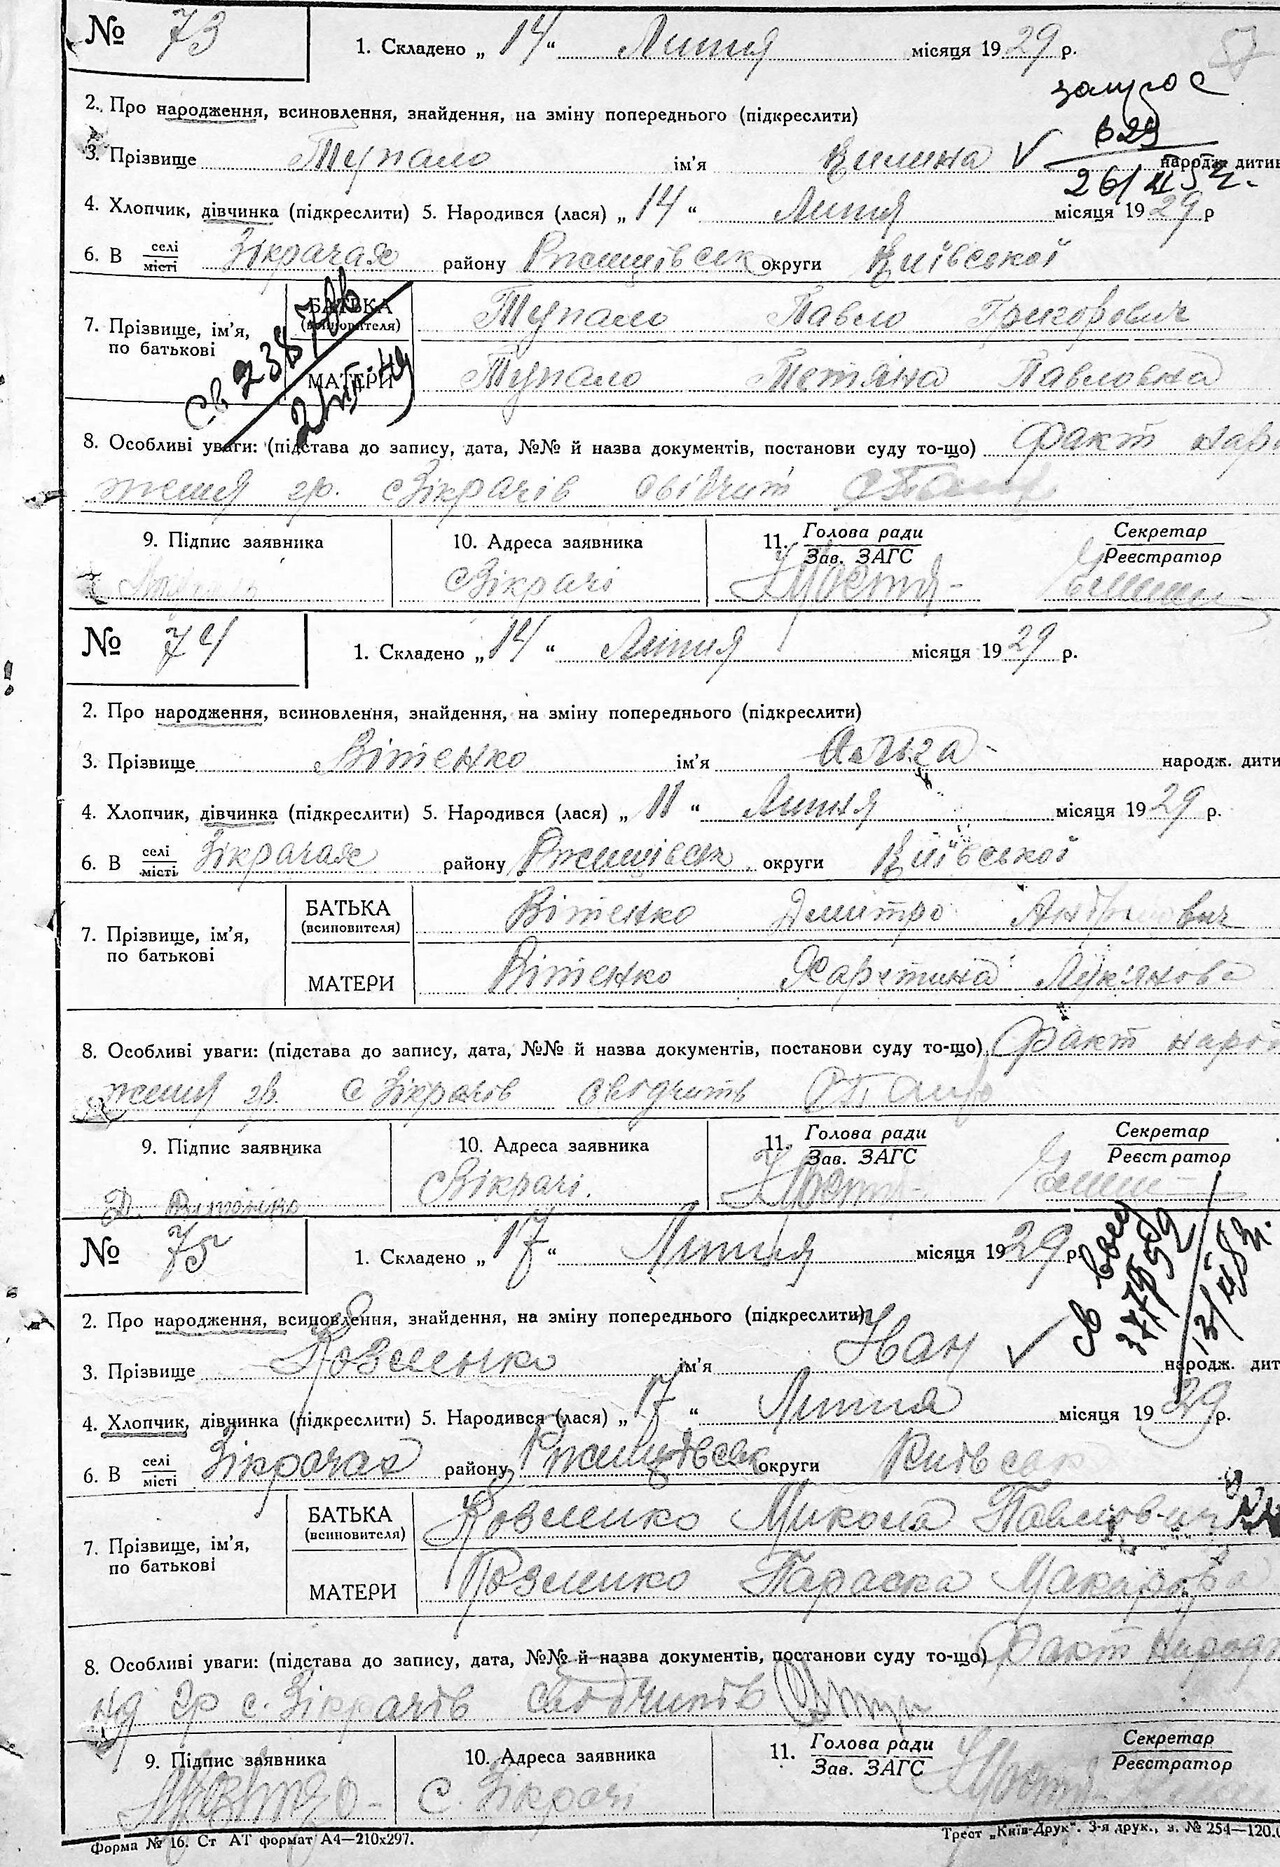 № 73 1. Складено „ 14 “ Липня місяця 1929 р. 57
2. Про народження, всиновлення, знайдення, на зміну попереднього (підкреслити) запрос
3. Прізвище Тупало ім'я Килина народж. дитин
829
4. Хлопчик, дівчинка (підкреслити) 5. Народився (лася) „ 14 “ Липня місяця 1929 р
6. В селі/місті Зікрачах району Ржищівськ округи Київської
7. Прізвище, ім'я, по батькові
БАТЬКА (всиновителя) Тупало Павло Григорович
МАТЕРИ Тупало Тетяна Павловна
Св 238706
8. Особливі уваги: (підстава до запису, дата, №№ й назва документів, постанови суду то-що) Факт народ
ження гр. с Зікрачів свідчит
9. Підпис заявника 10. Адреса заявника 11. Голова ради/Зав. ЗАГС Секретар/Реєстратор
с Зікрачі
№ 74 1. Складено „ 14 “ Липня місяця 1929 р.
2. Про народження, всиновлення, знайдення, на зміну попереднього (підкреслити)
3. Прізвище Вітенко ім'я Ольга народж. дити
4. Хлопчик, дівчинка (підкреслити) 5. Народився (лася) „ 11 “ Липня місяця 1929 р.
6. В селі/місті Зікрачах району Ржищівськ округи Київської
7. Прізвище, ім'я, по батькові
БАТЬКА (всиновителя) Вітенко Дмитро Андрійович
МАТЕРИ Вітенко Харетина Лукянова
8. Особливі уваги: (підстава до запису, дата, №№ й назва документів, постанови суду то-що) Факт народ
ження гр. с Зікрачів свідчить
9. Підпис заявника 10. Адреса заявника 11. Голова ради/Зав. ЗАГС Секретар/Реєстратор
Д. Вітенко с Зікрачі.
№ 75 1. Складено „ 17 “ Липня місяця 1929 р.
2. Про народження, всиновлення, знайдення, на зміну попереднього (підкреслити)
3. Прізвище Розменко ім'я Іван народж. дит
4. Хлопчик, дівчинка (підкреслити) 5. Народився (лася) „ 17 “ Липня місяця 1929 р.
6. В селі/місті Зікрачах району Ржищівськ округи Київськ
7. Прізвище, ім'я, по батькові
БАТЬКА (всиновителя) Розменко Микола Павлович
МАТЕРИ Розменко Параска Макарова
8. Особливі уваги: (підстава до запису, дата, №№ й назва документів, постанови суду то-що) Факт народ
ня гр с. Зікрачів свідчить
9. Підпис заявника 10. Адреса заявника 11. Голова ради/Зав. ЗАГС Секретар/Реєстратор
с. Зікрачі
Форма № 16. Ст АТ формат А4—210х297. Трест „Київ-Друк“. 3-я друк., з. № 254—120.0